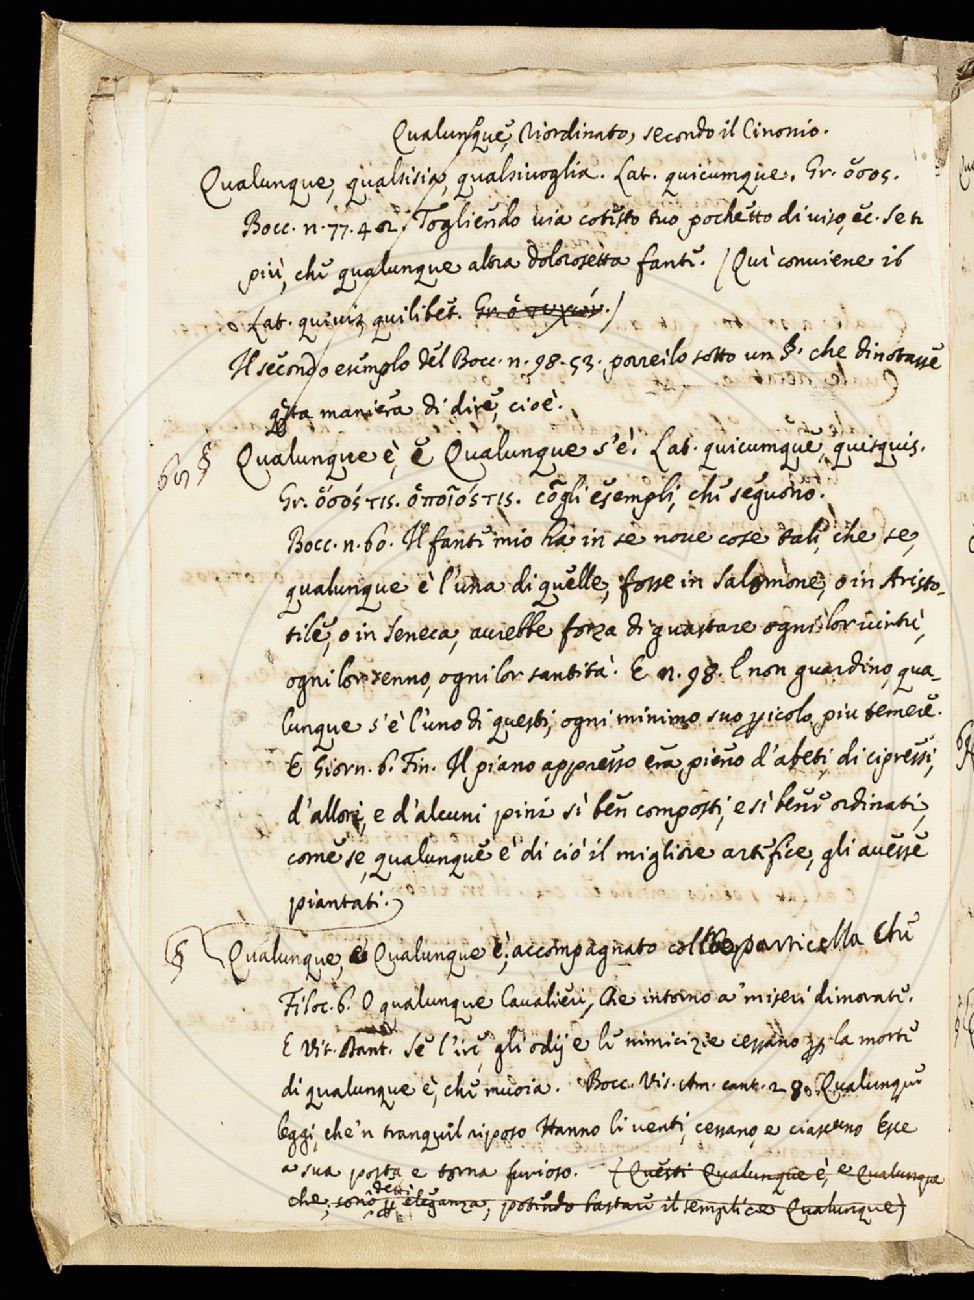 Qualunque, Riordinato, secondo il Cinonio.
Qualunque, qualsisia, qualsivoglia. Lat. quicumque. Gr. ὅσος.
Bocc. n. 77. 42. Togliendo via cotesto tuo pochetto di viso, ec. Se tu
più, che qualunque altra dolorosetta fante. (Quì conviene il
Lat. quivis, quilibet. Gr. ὁ τυχών.)
Il secondo esemplo del Bocc. n. 98. 53. porreilo sotto un §. che dinotasse
qsta maniera di dire, cioè.
§ Qualunque è, e Qualunque s'è. Lat. quicumque, quisquis.
Gr. ὅσός τις. ὁποῖός τις. cogli esempli, che seguono.
Bocc. n. 60. Il fante mio ha in se nove cose tali, che se,
qualunque è l'una di quelle, fosse in Salomone, o in Aristo-
tile, o in Seneca, avrebbe forza di guastare ogni lor virtù,
ogni lor senno, ogni lor santità. E n. 98. E non guardino, qua-
lunque s'è l'uno di questi, ogni minimo suo picolo, piu temere.
E Giorn. 6. Fin. Il piano appresso era pieno d'abeti, di cipressi,
d'allori, e d'alcuni pini sì ben composti, e sì bene ordinati,
come se, qualunque è di ciò il migliore artefice, gli avesse
piantati.
§ Qualunque, e Qualunque è, accompagnato colle particella che
Filoc. 6. O qualunque Cavalieri, che intorno a' miseri dimorate.
E Vit. Dant. Se l'ire, gli odij e le nimicizie cessano p la morte
di qualunque è, che muoia. Bocc. Vis. Am. cant. 28. Qualunque
leggi, che'n tranquil riposo Hanno li venti, cessano, e ciascuno Esce
a sua posta e torna furioso. (Questi Qualunque è, e Qualunque
che, sono p eleganza, potendo bastare il semplice Qualunque)